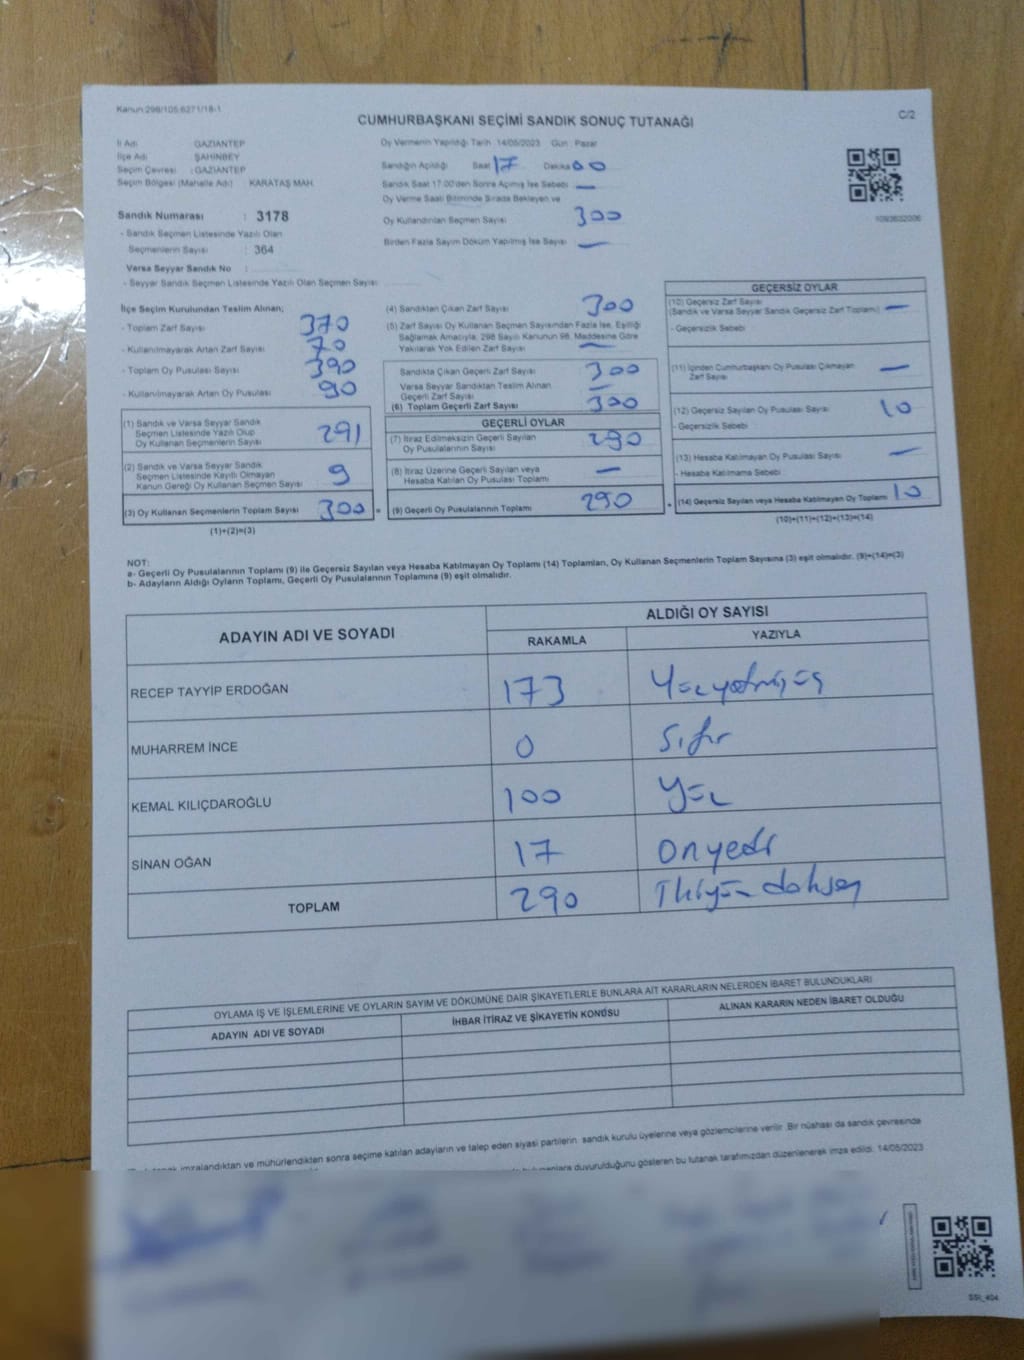 Kanun:298/105:6271/18-1
C/2
CUMHURBAŞKANI SEÇİMİ SANDIK SONUÇ TUTANAĞI
İl Adı : GAZİANTEP
İlçe Adı : ŞAHİNBEY
Seçim Çevresi : GAZİANTEP
Seçim Bölgesi (Mahalle Adı) : KARATAŞ MAH.
Sandık Numarası : 3178
- Sandık Seçmen Listesinde Yazılı Olan
Seçmenlerin Sayısı : 364
Varsa Seyyar Sandık No :
- Seyyar Sandık Seçmen Listesinde Yazılı Olan Seçmen Sayısı
Oy Vermenin Yapıldığı Tarih 14/05/2023 Gün : Pazar
Sandığın Açıldığı Saat 17 Dakika 00
Sandık Saat 17.00'den Sonra Açılmış İse Sebebi —
Oy Verme Saati Bitiminde Sırada Bekleyen ve
Oy Kullandırılan Seçmen Sayısı 300
Birden Fazla Sayım Döküm Yapılmış İse Sayısı —
1093632006
İlçe Seçim Kurulundan Teslim Alınan;
- Toplam Zarf Sayısı 370
- Kullanılmayarak Artan Zarf Sayısı 70
- Toplam Oy Pusulası Sayısı 390
- Kullanılmayarak Artan Oy Pusulası 90
(1) Sandık ve Varsa Seyyar Sandık
Seçmen Listesinde Yazılı Olup
Oy Kullanan Seçmenlerin Sayısı 291
(2) Sandık ve Varsa Seyyar Sandık
Seçmen Listesinde Kayıtlı Olmayan
Kanun Gereği Oy Kullanan Seçmen Sayısı 9
(3) Oy Kullanan Seçmenlerin Toplam Sayısı 300 =
(1)+(2)=(3)
(4) Sandıktan Çıkan Zarf Sayısı 300
(5) Zarf Sayısı Oy Kullanan Seçmen Sayısından Fazla İse, Eşitliği
Sağlamak Amacıyla, 298 Sayılı Kanunun 98. Maddesine Göre
Yakılarak Yok Edilen Zarf Sayısı —
Sandıkta Çıkan Geçerli Zarf Sayısı 300
Varsa Seyyar Sandıktan Teslim Alınan
Geçerli Zarf Sayısı —
(6) Toplam Geçerli Zarf Sayısı 300
GEÇERLİ OYLAR
(7) İtiraz Edilmeksizin Geçerli Sayılan
Oy Pusulalarının Sayısı 290
(8) İtiraz Üzerine Geçerli Sayılan veya
Hesaba Katılan Oy Pusulası Toplamı —
(9) Geçerli Oy Pusulalarının Toplamı 290 +
GEÇERSİZ OYLAR
(10) Geçersiz Zarf Sayısı
(Sandık ve Varsa Seyyar Sandık Geçersiz Zarf Toplamı) —
- Geçersizlik Sebebi
(11) İçinden Cumhurbaşkanı Oy Pusulası Çıkmayan
Zarf Sayısı —
(12) Geçersiz Sayılan Oy Pusulası Sayısı 10
- Geçersizlik Sebebi
(13) Hesaba Katılmayan Oy Pusulası Sayısı —
- Hesaba Katılmama Sebebi
(14) Geçersiz Sayılan veya Hesaba Katılmayan Oy Toplamı 10
(10)+(11)+(12)+(13)=(14)
NOT:
a- Geçerli Oy Pusulalarının Toplamı (9) ile Geçersiz Sayılan veya Hesaba Katılmayan Oy Toplamı (14) Toplamları, Oy Kullanan Seçmenlerin Toplam Sayısına (3) eşit olmalıdır. (9)+(14)=(3)
b- Adayların Aldığı Oyların Toplamı, Geçerli Oy Pusulalarının Toplamına (9) eşit olmalıdır.
ADAYIN ADI VE SOYADI
ALDIĞI OY SAYISI
RAKAMLA YAZIYLA
RECEP TAYYİP ERDOĞAN 173 Yüzyetmişüç
MUHARREM İNCE 0 Sıfır
KEMAL KILIÇDAROĞLU 100 Yüz
SİNAN OĞAN 17 Onyedi
TOPLAM 290 İkiyüz doksan
OYLAMA İŞ VE İŞLEMLERİNE VE OYLARIN SAYIM VE DÖKÜMÜNE DAİR ŞİKAYETLERLE BUNLARA AİT KARARLARIN NELERDEN İBARET BULUNDUKLARI
ADAYIN ADI VE SOYADI İHBAR İTİRAZ VE ŞİKAYETİN KONUSU ALINAN KARARIN NEDEN İBARET OLDUĞU
imzalandıktan ve mühürlendikten sonra seçime katılan adayların ve talep eden siyasi partilerin sandık kurulu üyelerine veya gözlemcilerine verilir. Bir nüshası da sandık çevresinde
duyurulduğunu gösteren bu tutanak tarafımızdan düzenlenerek imza edildi. 14/05/2023
SSI_404